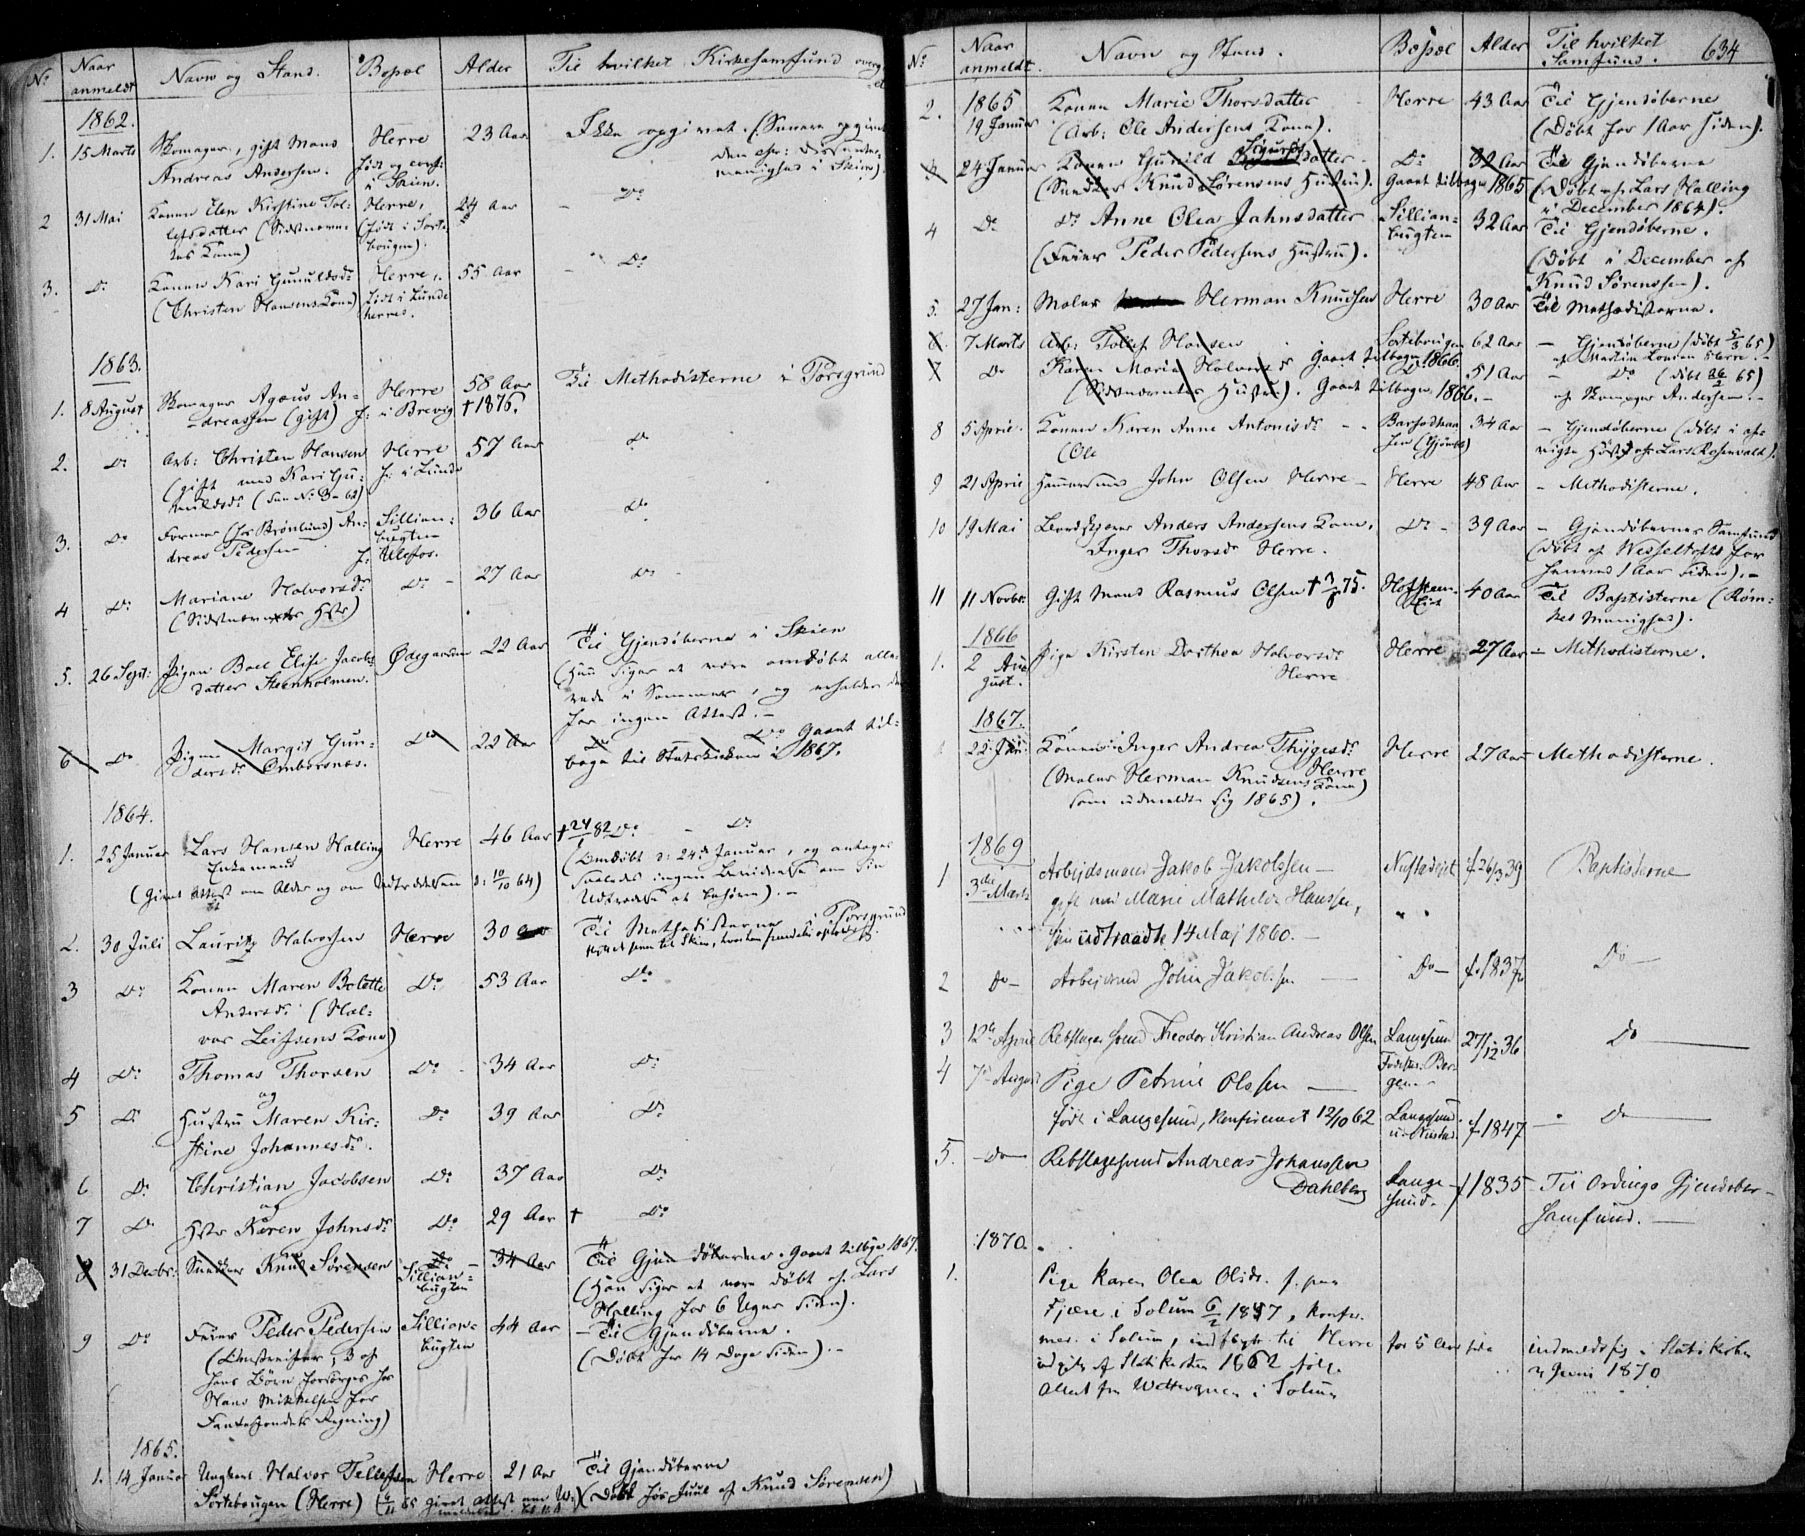 No Naar anmeldt Navn og Stand. Bopæl Alder Til hvilket Kirkesamfund
1862.
1. 15 Marts Skomager, gift Mand Herre 23 Aar Ikke opgivet. (Senere opgivet
Andreas Andersen. født og conf: i Skien. den chr: dissenter-
menighed i Skien).
2 31 Mai Konen Elen Kirstine Tol- Herre, 24 Aar Do
lefsdatter (Sidstnævn- (født i Sorte-
tes Kone) bougen).
3. Do Konen Kari Gunuldsdr Herre, 55 Aar Do
(Christen Hansens Kone) født i Lunde-
herred.
1863.
1. 8 August Skomager Agæus An- Herre 58 Aar Til Methodisterne i Porsgrund
dreassen (gift) f. i Brevig † 1876.
2. Do Arb: Christen Hansen Herre 57 Aar Do
(gift med Kari Gu- f. i Lunde
nuldsdr (See No 3 - 62)
3. Do Former (for Brønlund) An- Sillian- 36 Aar Do
dreas Pedersen bugten
f. Ulefos.
4 Do Mariane Halvorsdr Do 27 Aar Do
(Sidstnævntes Hstr)
5. 26 Sept: Pigen Boel Elise Jacobs- Ødegaarden 22 Aar Til Gjendøberne i Skien
datter Steenholmen. (Hun siger at være omdøbt alle-
rede i Sommer, og erholder der-
for ingen Attest.-
6 Do Pigen Margit Gun- Do 22 Aar Do Do Gaaet til-
dersdr Ombersnæs. bage til Statskirken i 1867.
1864.
1. 25 Januar Lars Hansen Halling Herre 46 Aar † 82 Do - Do
Enkemand (Omdøbt d: 24de Januar, og antages
(Givet Attest om Alder og om Udtrædelsen d: 10/10 64) saaledes ingen Bevidnelse om sin
Udtrædelse at behøve).-
2. 30 Juli Lauritz Halvorsen Herre 30 Aar Til Methodisterne i Porsgrund
3 Do Konen Maren Bolette Do 53 Aar Do
Andersdr (Hal-
vor Leifsens Kone)
4 Do Thomas Thorsen Do 34 Aar Do
og
5 Do Hustru Maren Kir- Do 39 Aar Do
stine Johannesdr.
6 Do Christian Jacobsen Do 37 Aar Do
og
7 Do Hstr Karen Johnsdr Do 29 Aar † Do
8 31 Decbr: Snedker Knud Sørensen Do 34 Aar Til Gjendøberne. Gaaet tilbage 1867.
Sillian- (Han siger at være døbt af Lars
bugten Halling for 6 Uger siden).
9 Do Feier Peder Pedersen Sillian- 44 Aar - Til Gjendøberne.
bugten (Døbt for 14 Dage siden).-
hans Børn forsørges hos
Hans Mikkelsen for
Fantefondets Regning)
1865.
1. 14 Januar Ungkarl Halvor Tellefsen Herre 21 Aar Til Gjendøberne
Sortebougen (Herre) (Døbt før Juul af Knud Sørensen)
No Naar anmeldt. Navn og Stand. Bopæl Alder Til hvilket Samfund. 634
1865
2. 19 Januar Konen Marie Thorsdatter Herre 43 Aar Til Gjendøberne
(Arb: Ole Andersens Kone). (Døbt for 1 Aar siden).
3 24 Januar Konen Gunild Sigurdsdatter Do 32 Aar Til Gjendøberne
(Snedker Knud Sørensens Hustru). Gaaet tilbage 1865 (Døbt af Lars Halling
i December 1864).
4 Do Do Anne Olea Jahnsdatter Sillian- 32 Aar Til Gjendøberne.
(Feier Peder Pedersens Hustru). bugten (Døbt i December af
Knud Sørenssen).
5. 27 Jan: Maler Herman Knudsen Herre 30 Aar Til Methodisterne.
6. 7 Marts Arb: Tollef Hansen Sortebougen 62 Aar - Gjendøberne (døbt 5/3 65)
Gaaet tilbage 1866. af Martin Herre.-
7 Do Karen Maria Halvorsdr Do 51 Aar - Do (døbt 26/2 65)
(Sidstnævntes Hustru). Gaaet tilbage 1866.- af Skomager Andersen.-
8 5 April Konen Karen Anne Antonisdr - - 34 Aar - Gjendøberne (døbt i for-
(Ole rige Høst af Lars Rosenvald).
9 21 April Hammersmed John Olsen Herre - Herre 48 Aar - Methodisterne.
10 19 Mai Anders Andersens Kone, Do - 39 Aar - Gjendøbernes Samfund
Inger Thorsdr Herre. (døbt af Wesseltoft for
henved 1 Aar siden).-
11 11 Novbr: Gift Mand Rasmus Olsen † 75. 40 Aar Til Baptisterne (Røm-
nes Menighed).
1866
1. 2 August. Pige Kirsten Dorthea Halvorsdr Herre 27 Aar - Methodisterne.
Herre
1867.
22 Konen Inger Andrea Thygesdr Herre 27 Aar - Methodisterne.
Herre
(Maler Herman Knudsens Kone)
som udmeldte sig 1865).
1869
1 3die Marts Arbejdsmand Jakob Jakobssen - f 26/3 39 Baptisterne
gift med Marie Mathilde Hanssen, " "
udtraadte 14 Maj 1860.-
2 Do - John Jakobssen - Do - f. 1837 Do -
3 12te April Rebslagersvend Theodor Kristian Andreas Olsen Langesund 27/12 36 Do
Ber-
gen -
4 7de August Pige Petrine Olssen -
født i Langesund, konfirmeret 12/10 62 Langesund f 1847 - Do -
5. Do - Rebslagersvend Andreas Johanssen Lange- f 1835 - Til Ordings Gjendøber-
Dahlberg sund. samfund. -
1870.
1. Pige Karen Olea Olsdr. f. paa
Fjære i Solum 6/2 1847, konfir-
meret i Solum, indflyttet til Herre for 5 Aar siden indmeldt sig i Statskirken
udgik af Statskirken 1862 ifølge i Juni 1870
Attest fra i Solum